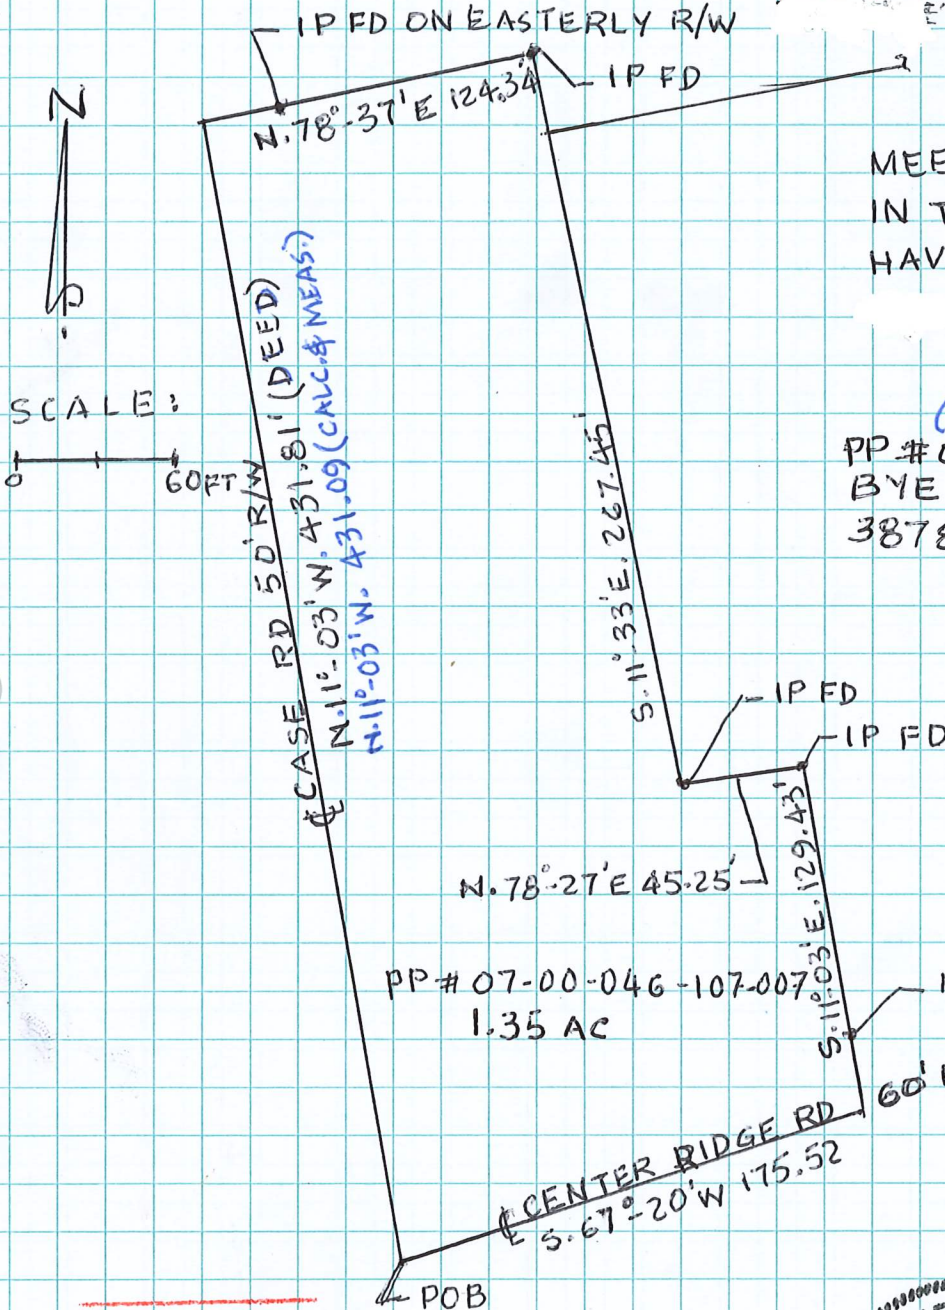 IP FD ON EASTERLY R/W
IP FD
N
N. 78°-37' E 124.34
MEE
IN T
HAV
SCALE:
0 60FT
CASE RD 50' R/W
N. 11°-03' W. 431.81' (DEED)
N. 11°-03' W. 431.09 (CALC. & MEAS.)
S. 11°-33' E. 267.45'
PP #
BYE
3878
IP FD
IP FD
N. 78°-27' E 45.25'
S. 11°-03' E. 129.43'
PP# 07-00-046-107-007
1.35 AC
60'
℄ CENTER RIDGE RD
S. 67°-20' W 175.52
POB